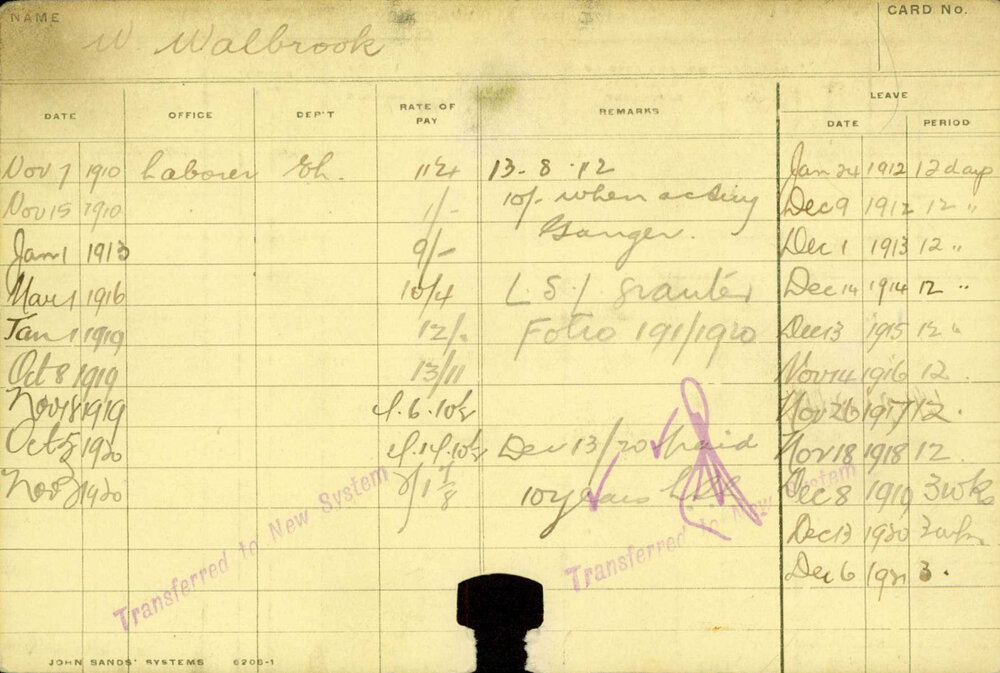 NAME
W. Walbrook
CARD No.
DATE OFFICE DEP'T RATE OF PAY REMARKS LEAVE
DATE PERIOD
Nov 7 1910 Laborer 13-8-12 Jan 24 1912 12 days
Nov 15 1910 1/- 10/- when acting Dec 9 1912 12 "
Ganger.
Jan 1 1913 9/- Dec 1 1913 12 "
Mar 1 1916 10/4 L.S.l granted Dec 14 1914 12 "
Jan 1 1919 12/- Folio 191/1920 Dec 13 1915 12 "
Oct 8 1919 13/11 Nov 14 1916 12.
Nov 18 1919 Nov 26 1917 12.
Oct 5 1920 Dec 13/20 paid Nov 18 1918 12.
Nov 1920 10 years Dec 8 1919 3 wks
Dec 13 1920 3 wks
Dec 6 1921 3.
Transferred to New System
Transferred to New System
JOHN SANDS' SYSTEMS 6206-1